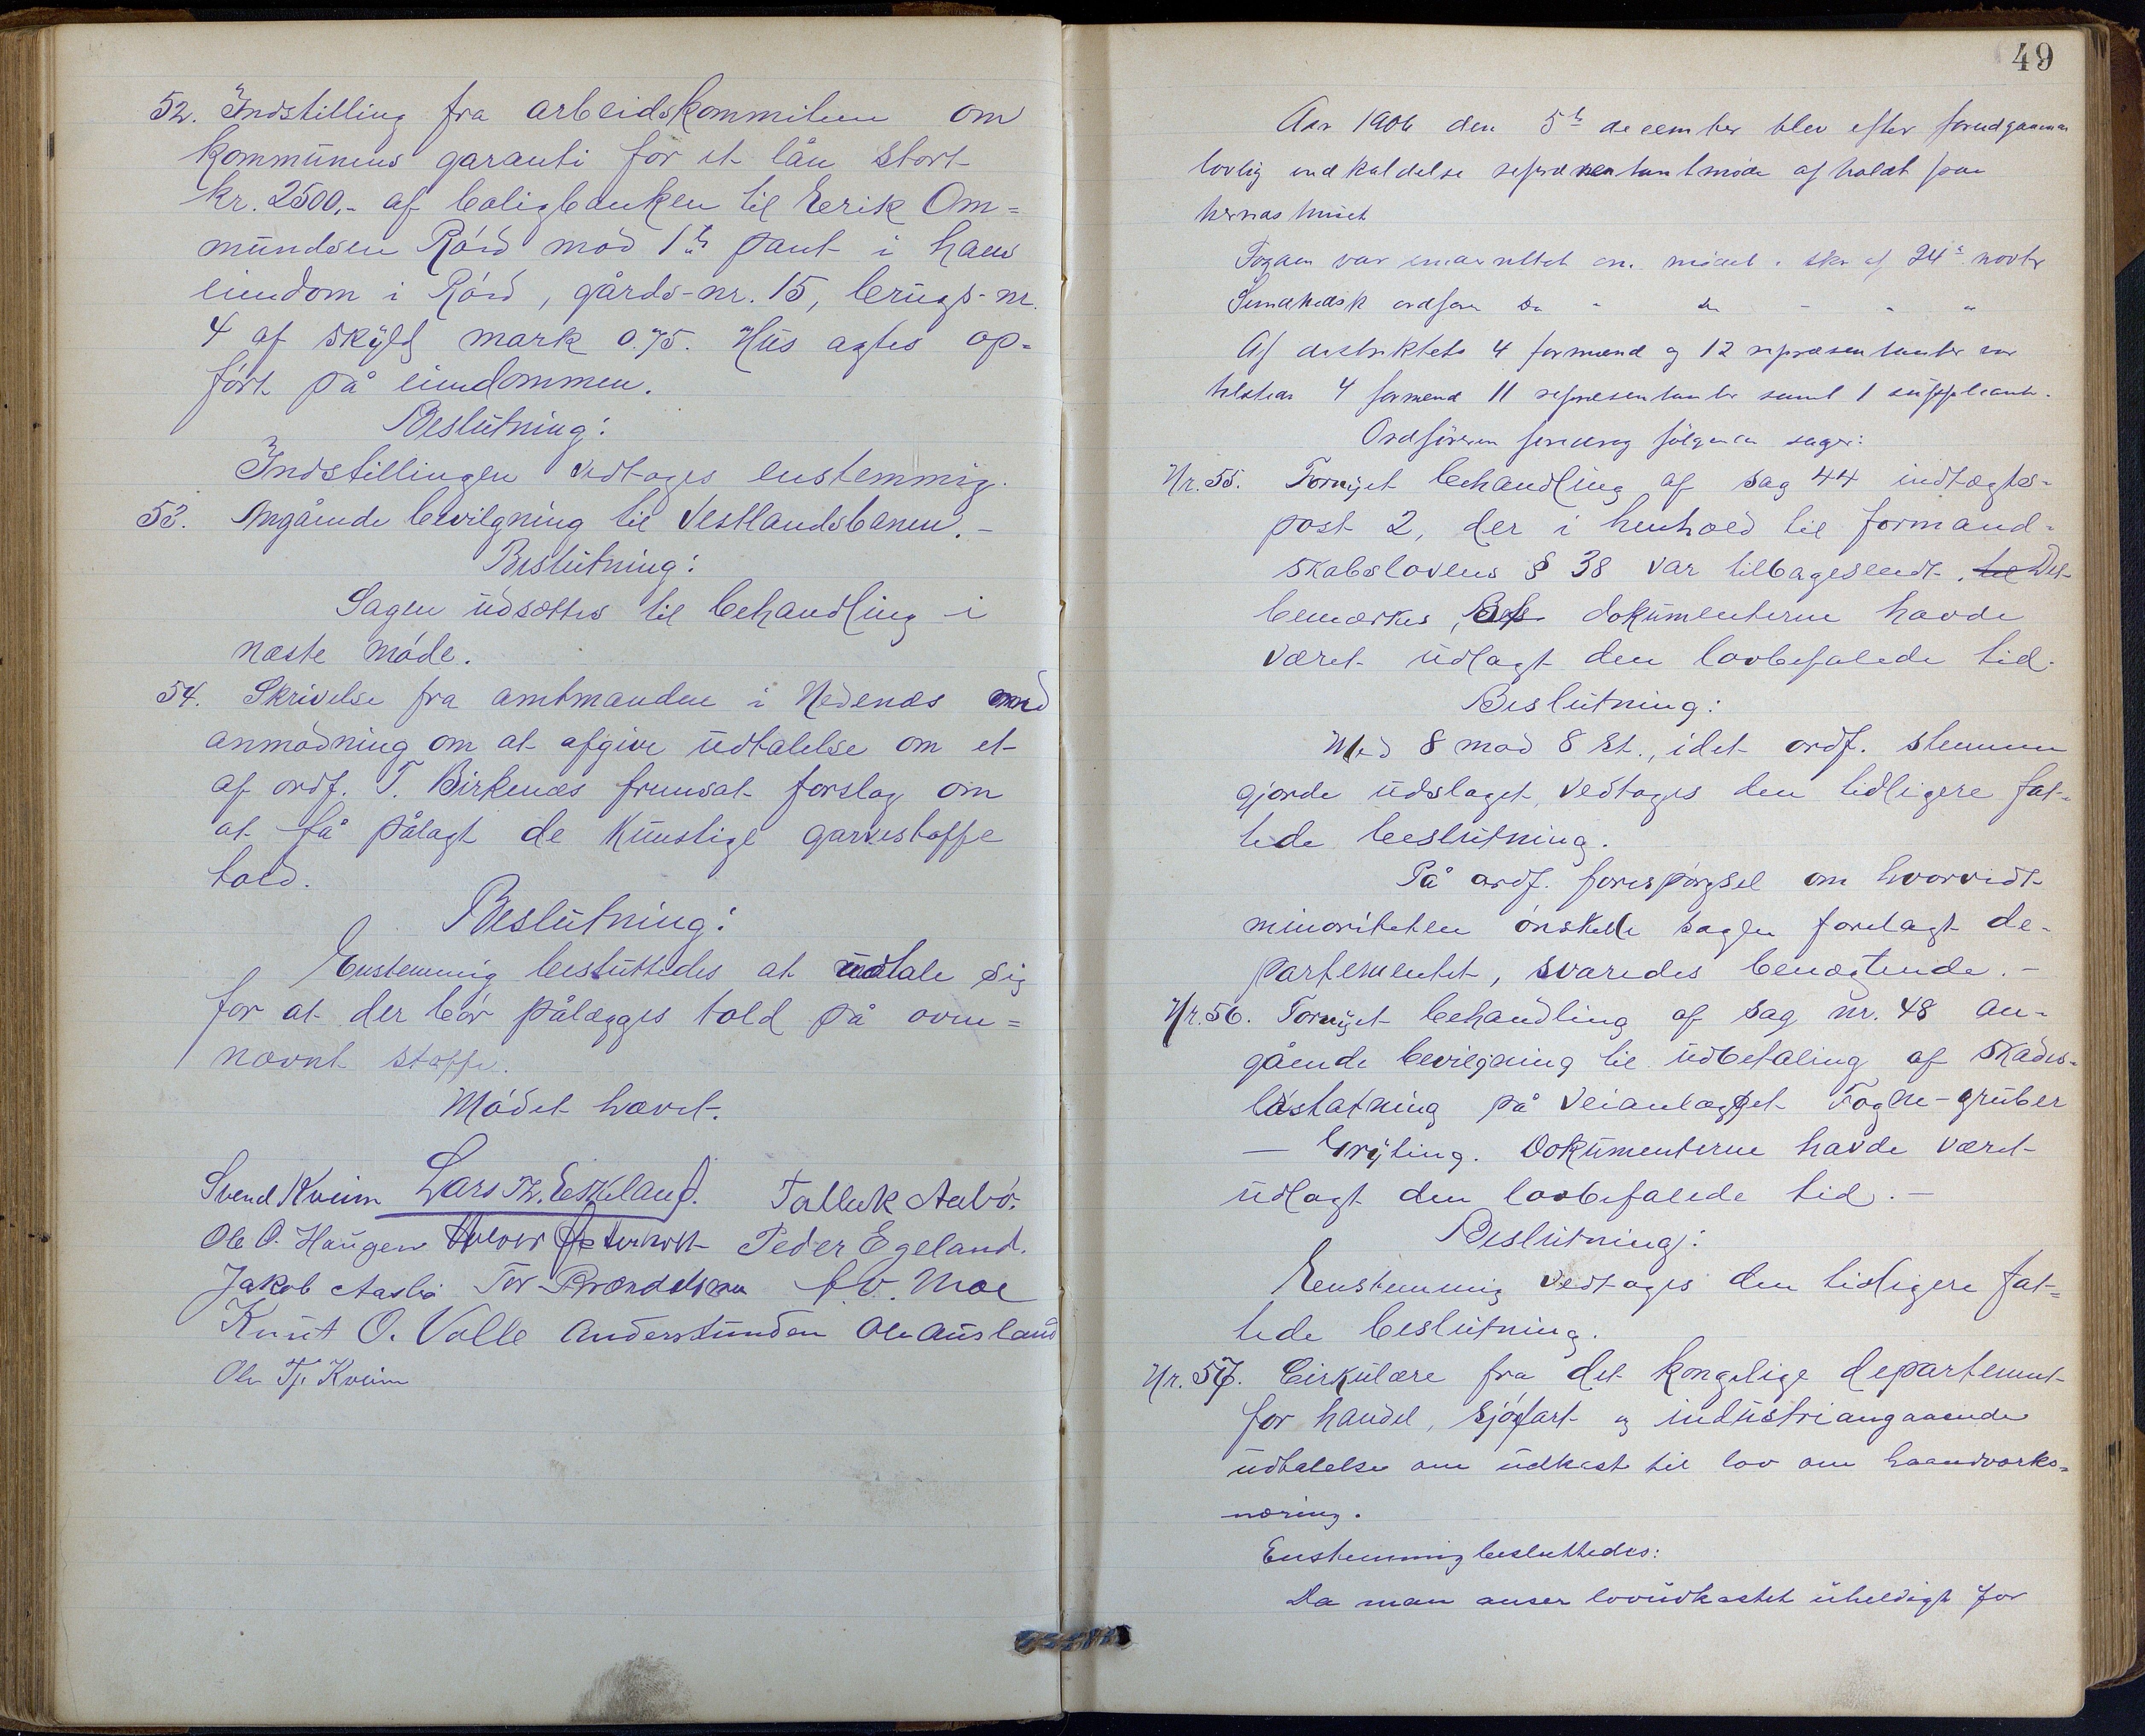 52. Indstilling fra arbeidskommiteen om
kommunens garanti for et lån stort
kr. 2500.- af boligbanken til Eerik Om=
mundsen Röid mod 1ste pant i hans
eiendom i Röid, gårds-nr. 15, brugs-nr.
4 af skyld mark 0.75. Hus agtes op=
ført på eiendommen.
Beslutning:
Indstillingen vedtages enstemmig.
53. Angående bevilgning til Vestlandsbanen.-
Beslutning:
Sagen udsættes til behandling i
næste möde.
54. Skrivelse fra amtmanden i Nedenæs med
anmodning om at afgive udtalelse om et
af ordf. T. Birkenæs fremsat forslag om
at få pålagt de kunstige garvestoffe
told.
Beslutning:
Enstemmig besluttedes at udtale sig
for at der bör pålægges told på oven=
nævnt stoffe.
Mödet hævet.
Svend Kveim Lars Th. Eskeland. Tallak Aabö.
Ole O. Haugen Peder Egeland.
Jakob Aasbö Tor Brændelsmo Moe
Knut O. Valle Anders Lunden Ole Ausland
Ole Tj. Kveim
49
Aar 1906 den 5te december blev efter forudgaaende
lovlig indkaldelse repræsentantmöde afholdt paa
herredshuset
Fogden var underrettet om mödet i skr. af 24de novbr
Af distriktets 4 formænd og 12 repræsentanter var
tilstede 4 formænd 11 repræsentanter samt 1 suppleant.
Ordföreren foredrog fölgende sager:
Nr. 55. Fornyet behandling af sag 44 indtægts-
post 2, der i henhold til formand-
skabslovens § 38 var tilbagesendt. Det
bemærkes, dokumenterne havde
været udlagt den lovbefalede tid.
Beslutning:
Med 8 mod 8 st., idet ordf. stemme
gjorde udslaget, vedtages den tidligere fat-
tede beslutning.
På ordf. forespörgsel om hvorvidt
minoriteten önskede sagen forelagt de-
partementet, svaredes benægtende.-
Nr. 56. Fornyet behandling af sag nr. 48 an-
gående bevilgning til udbetaling af skades-
löstatning på veianlægget Togne-gruber
- Gryting. Dokumenterne havde været
udlagt den lovbefalede tid.-
Beslutning:
Eenstemmig vedtages den tidligere fat-
tede beslutning.
Nr. 57. Cirkulære fra det kongelige departement
for handel, sjöfart og industri angaaende
udtalelse om udkast til lov om haandverks=
næring.
Enstemmig besluttedes:
Da man anser lovudkastet uheldigt for